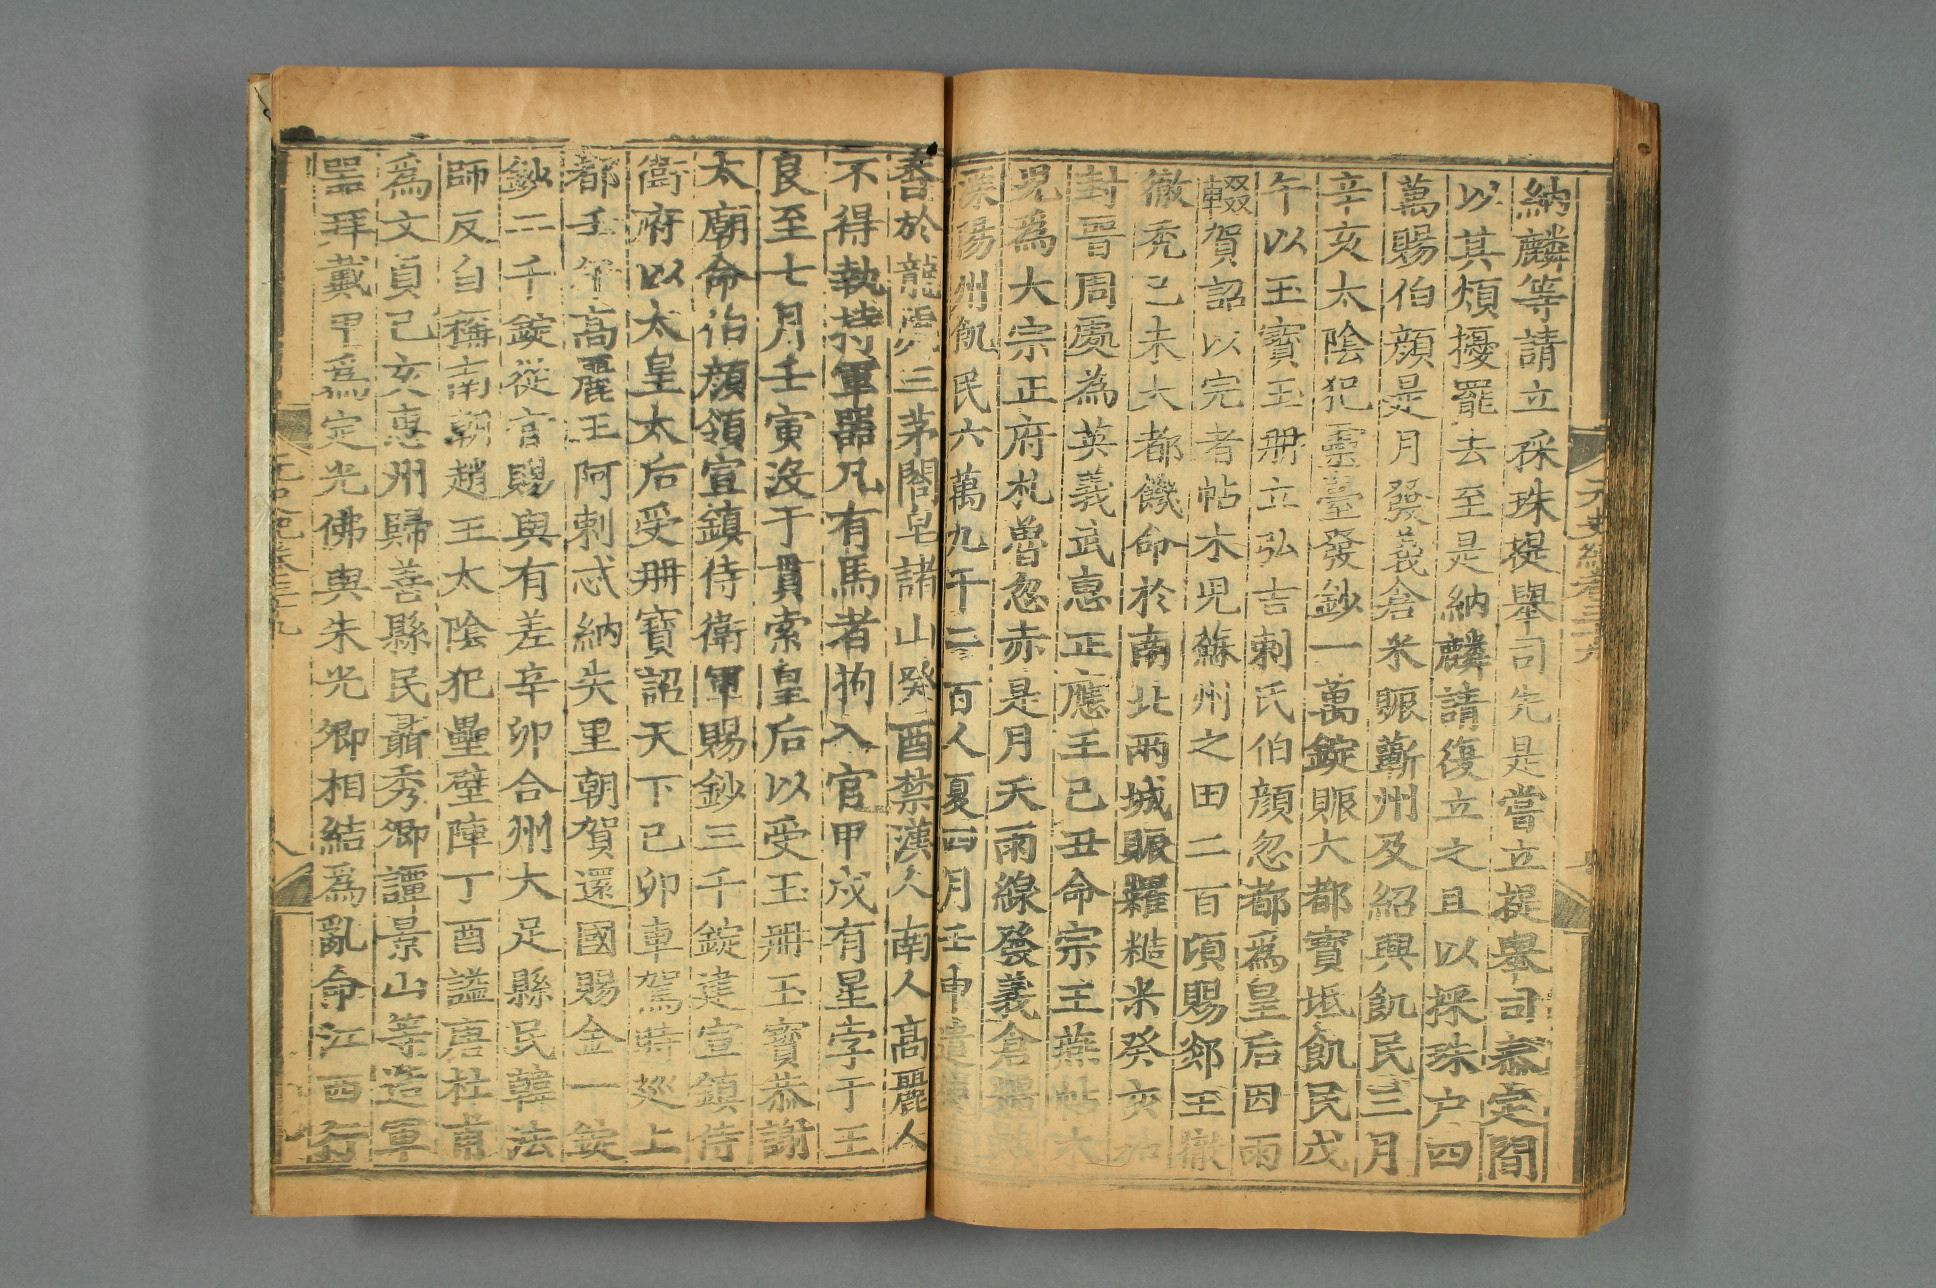 納麟等請立採珠提舉司先是嘗立提舉司泰定間
以其煩擾罷去至是納麟請復立之且以採珠户四
萬賜伯顔是月發義倉米賑蘄州及紹興飢民三月
辛亥太陰犯靈臺發鈔一萬錠賑大都寳坻飢民戊
午以玉寳玉册立弘吉剌氏伯顔忽都爲皇后因雨
輟賀詔以完者帖木兒蘇州之田二百頃賜郯王徹
徹秃己未大都饑命於南北兩城賑糶糙米癸亥加
封晋周處為英義武惠正應王己丑命宗王燕帖木
兒爲大宗正府札魯忽赤是月天雨線發義倉糧賑
溧陽州飢民六萬九千二百人夏四月壬申遣使
香於龍虎三茅閤皂諸山癸酉禁漢人南人高麗人
不得執持軍器凡有馬者拘入官甲戌有星孛于王
良至七月壬寅没于貫索皇后以受玉册玉寳恭謝
太廟命伯顔領宣鎮侍衛軍賜鈔三千錠建宣鎮侍
衛府以太皇太后受册寳詔天下己卯車駕時廵上
都壬午高麗王阿剌忒納失里朝賀還國賜金一錠
鈔二千錠從官賜與有差辛卯合州大足縣民韓法
師反自稱南朝趙王太陰犯壘壁陣丁酉謚唐杜甫
爲文貞己亥惠州歸善縣民聶秀卿譚景山等造軍
器拜戴甲爲定光佛與朱光卿相結爲亂命江西行